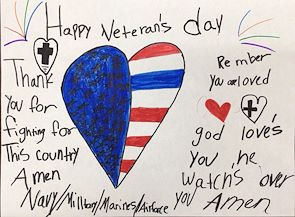 Happy Veteran's day
Thank
You for
fighting for
This country
Amen
Remember
You are loved
god love's
You he
watch's over
you Amen
Navy/Military/Marines/Airforce